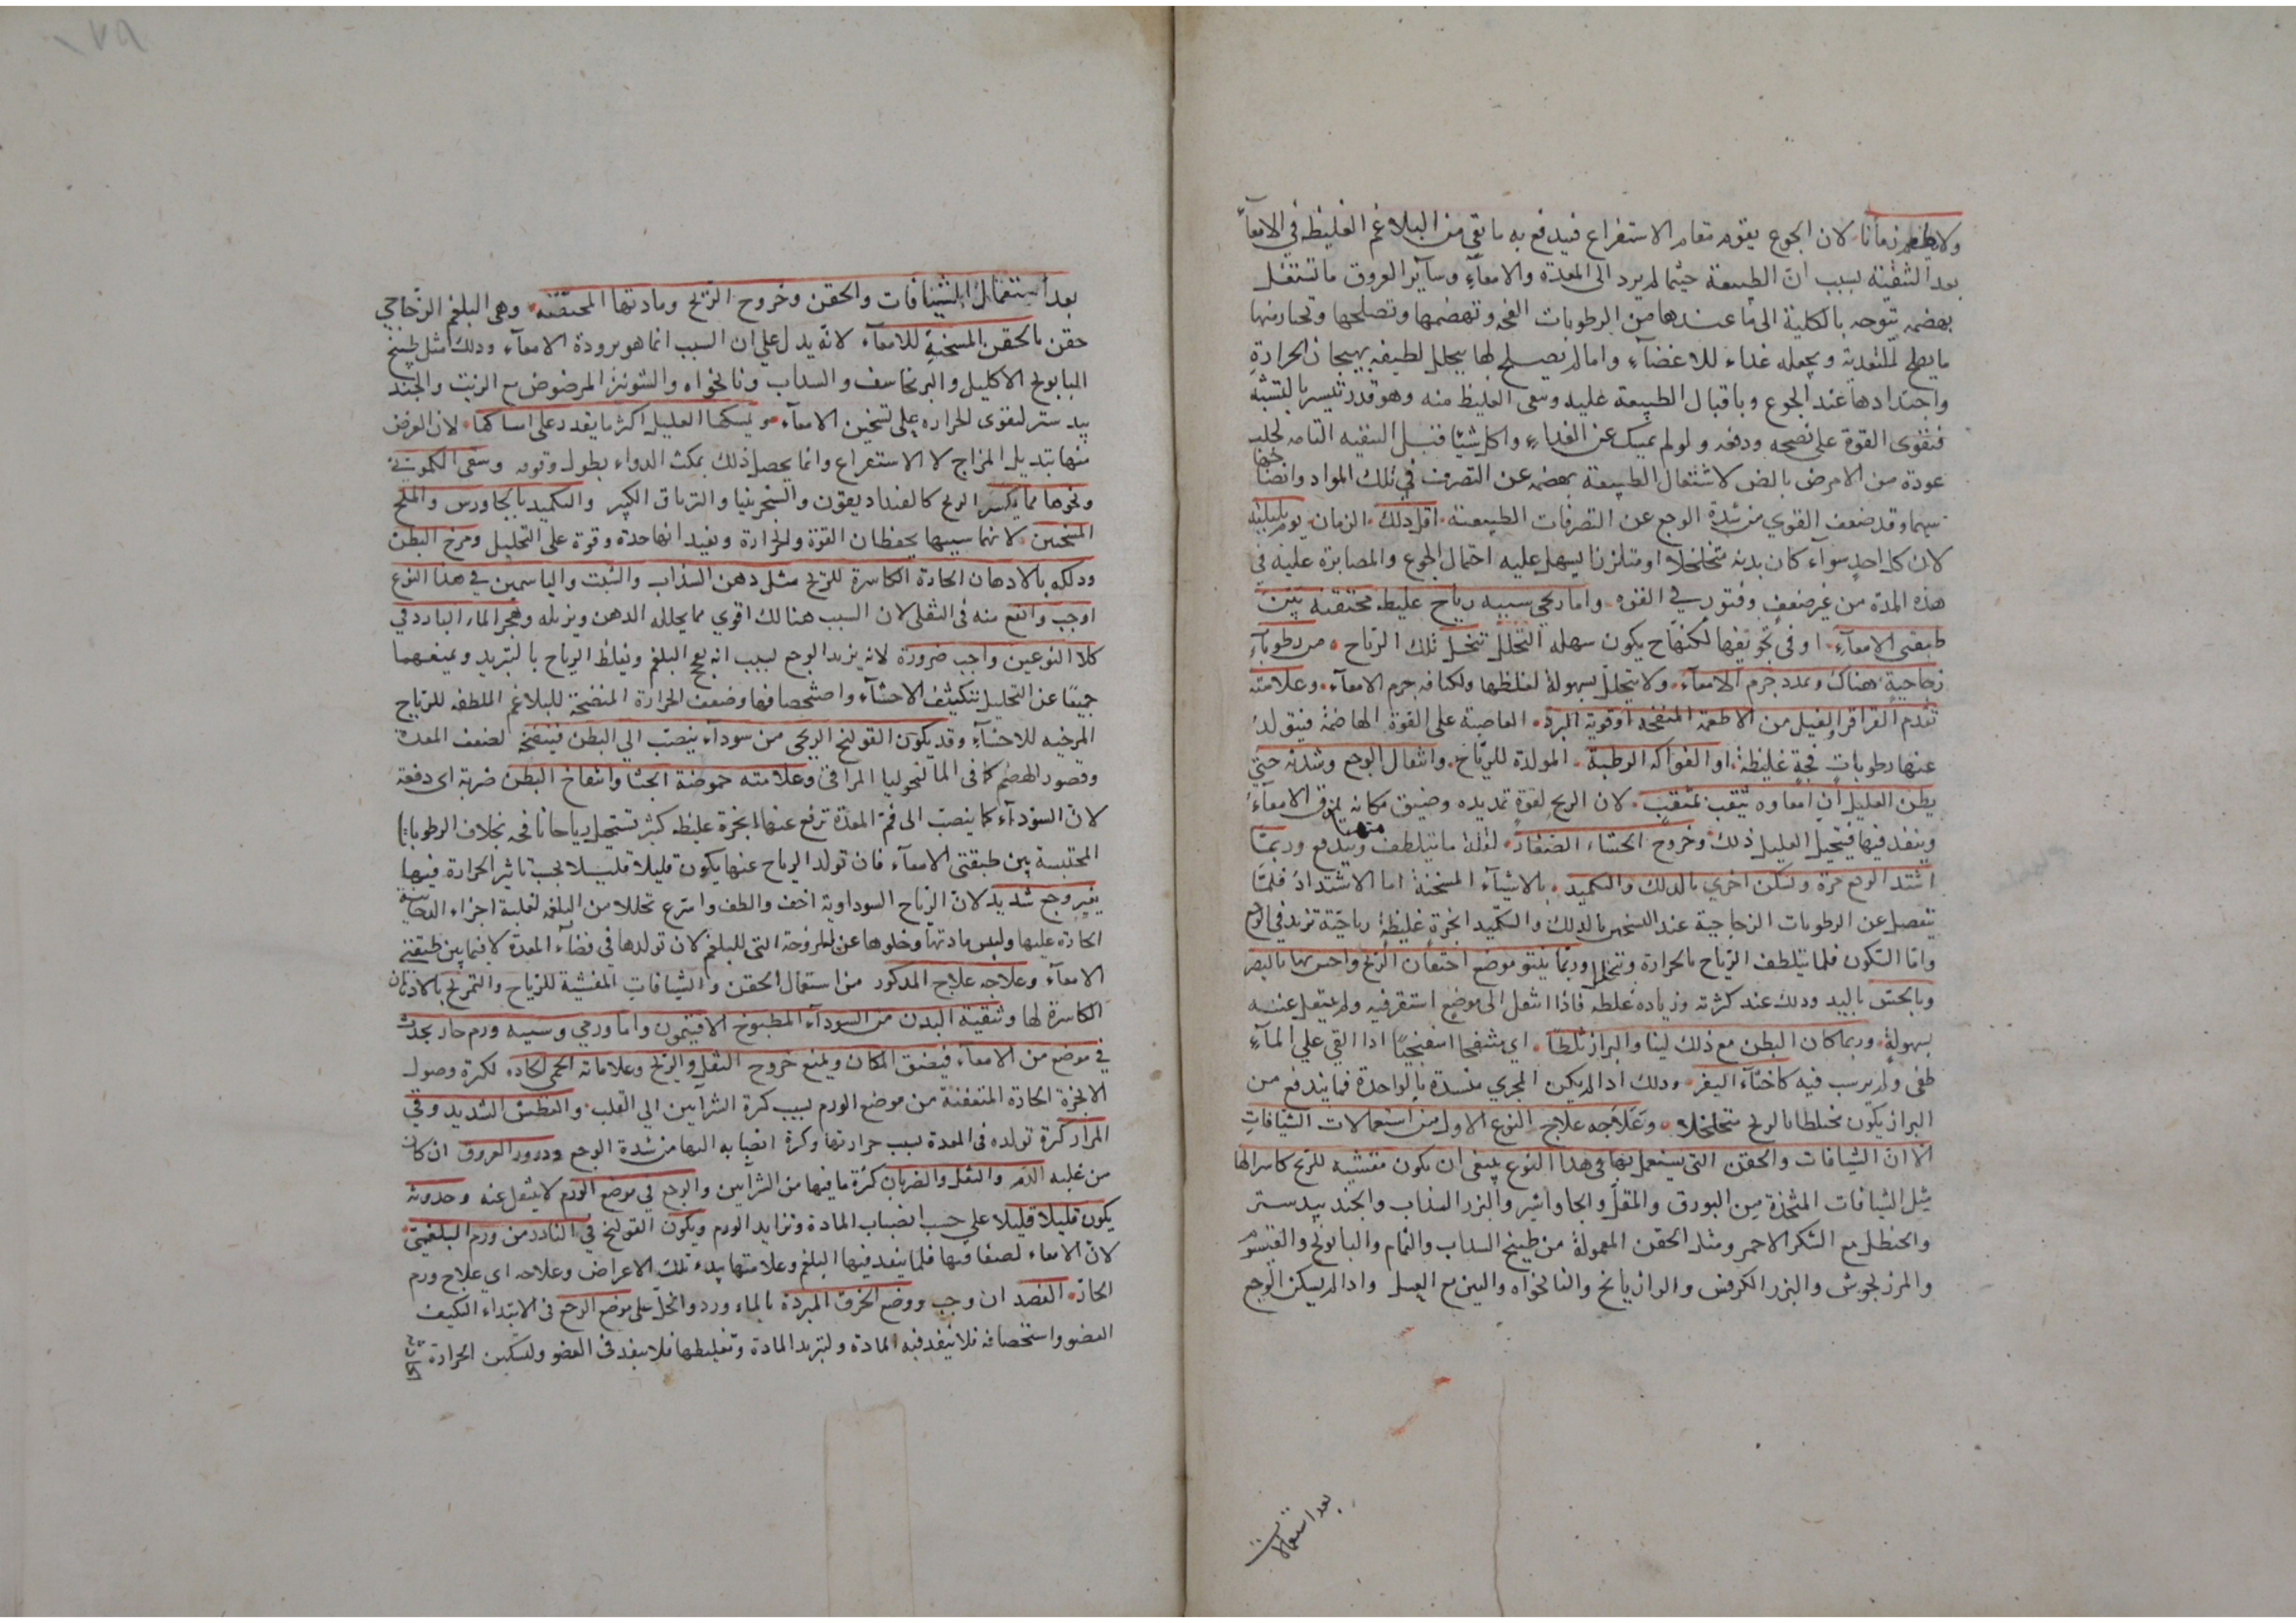 ولا يطعم زمانا لان الجوع يقوم مقام الاستفراغ فيدفع به ما بقي من البلاغم الغليظة في الامعآء
بعد التنقية بسبب انّ الطبيعة حيثما لم يرد الى المعدة والامعآءِ وسآير العروق ما تشتغل
بهضمه تتوجه بالكلية الى ما عندها من الرطوبات الفجه وتهضمها وتصلحها وتختار منها
ما يصلح للتغدية ويجعله غداء للاعضآءِ واما لم يصلح لها يتحلل لطيفه بهيجان الحرارة
واحتدادها عند الجوع وباقبال الطبيعة عليه وبقى الغليظ منه وهو قدر يسير بالنسبة
فتقوى القوة على نضجه ودفعه ولو لم يمسك عن الغداءِ واكل شيئا قبل التنقيه التامه لجلب
عودة من الامرض بالض لاشتغال الطبيعة بهضمه عن التصرف في تلك المواد وانضاجها
سيما وقد ضعف القوي من شدة الوجع عن التصرفات الطبيعية اقل ذلك الزمان يوم بليلته
لان كل احدٍ سوآء كان بدنه متخلخلا او متلززا يسهل عليه احتمال الجوع والمصابرة عليه في
هذه المدة من غير ضعفٍ وفتورٍ في القوه واما ريحي سببه رياح غليظ محتقنه بين
طبقتي الامعآءِ او في تجويفها لكنها ح يكون سهله التحلل تتحلل تلك الرياح من رطوبآتٍ
زجاجية هناك وتمدد جرم الامعآء ولا يتحلل بسهولة لغلظها ولكثافه جرم الامعآء وعلامته
تقدم القراقر والفيل من الاطعمة المنفخه او قوية البرد العاصية على القوة الهاضمة فيتولد
عنها رطوبات فجةٍ غليظة او الفواكه الرطبة المولدة للرياح وانتقال الوجع وشدته حيتى
يظن العليل ان امعاوه تثقب بمثقب لان الريح لقوةٍ تمديده وضيق مكانه يمزق الامعآء
وينفد فيها فيتخيل العليل ذلك وخروج الجشاء الصغار لقلة ما يتلطف منها ويندفع وربما
اشتد الوجع مرة وسكن اخري بالدلك والتكميد بالاشيآء المسخنة اما الاشتداد فلما
ينفصل عن الرطوبات الزجاجية عند التسخين بالدلك والتكميد ابخرة غليظة رياحيّة تزيد في الوجع
وامّا السكون فلما يتلطف الرياح بالحرارة وتتحلل وربّما ينتو موضع احتقان الريح واحس بها بالبصر
وبالجسّ باليد ودلك عند كثرته وزياده غلظه فاذا انتقل الى موضع استقر فيه ولم ينتقل عنه
بسهولةٍ وربما كان البطن مع ذلك لينا والبراز ثلطا اي منتفخا اسفنجيّا اذا القي علي المآءِ
طفى ولم يرسب فيه كاخثآء البقر ودلك اذا لم يكن المجري منسدة بالواحدة فما يندفع من
البراز يكون مختلطا بالريح متخلخلا وعلاجه علاج النوع الاول من استعمالات الشيافات
الا انّ الشيافات والحقن التى يستعمل بها في هذا النوع ينبغى ان يكون مفشيه للريح كاسرا لها
مثل الشيافات المتخذة من البورق والمقل والجاواشير والبزر السذاب والجند بيدستر
والحنظل مع السكر الاحمر ومثل الحقن المعمولة من طبيخ السداب والنمام والبابونج والقيسوم
والمرزنجوش والبزر الكرفس والرازيانج والنانخواه والتين مع العسل واذا لم يسكن الوجع
بعد استعمالات
بعد استعمال الشيافات والحقن وخروج الريح ومادتها المحتقنه وهى البلغم الزجاجي
حقن بالحقن المسخنة للامعآء لانّه يدل علي ان السبب انما هو برودة الامعآء ودلك مثل طبيخ
البابونج الاكليل والبرنجاسف والسداب ونانخواه والشونيز المرضوض مع الزيت والجند
بيدستر لتقوى الحرارة علي تسخين الامعآء ويمسكها العليل اكثر ما يقدر على امساكها لان الغرض
منها تبديل المزاج لا الاستفراغ وانما يحصل ذلك بمكث الدواء بطول وقوفه وسقى الكمونى
ونحوها مما يكسر الريح كالفنداديقون والسنجرنيا والترياق الكبير والتكميد بالجاورس والملح
المسخن لانهما سببها يحفظان القوة والحرارة ويفيدانها حدة وقوة على التحليل ومرخ البطن
ودلكه بالادهان الحارة الكاسرة للريح مثل دهن السذاب والشبت والياسمين في هذا النوع
اوجب وانفع منه فى الثفلى لان السبب هنا لك اقوي مما يحلله الدهن ويزيله وهجر الماء البارد في
كلا النوعين واجب ضرورة لانه يزيد الوجع بسبب انه يفج البلغم ويغلظ الرياح بالتبريد ويمنعهما
جميعًا عن التحليل بتكثيف الاحشآء واستحصافها وضعف الحرارة المنضجة للبلاغم الملطفه للرياح
المرخيه للاحشآءِ وقد يكون القولنج الريحى من سودآء ينصب الي البطن فينفخه لضعف المعدة
وقصور الهضم كما فى المالنخوليا المراقى وعلامته حموضة الجشا وانتفاخ البطن ضربة اى دفعة
لانّ السودآء كما ينصب الى فمّ المعدة ترفع عنها ابخرة غليظه كثيرة يستحيل رياحا نافخه بخلاف الرطوبات
المحتبسة بين طبقتى الامعآء فان تولد الرياح عنها يكون قليلا قليلا بحسب تاثير الحرارة فيها
بغير وجع شديد لانّ الرياح السوداوية اخف والطف واسرع تحللا من البلغمية لغلبة اجزاء الدخانية
الحارة عليها وليبس مادتها وخلوها عن اللزوجة التى للبلغم لان تولدها في فضآء المعدة لا فيما بين طبقتى
الامعآء وعلاجه علاج المدكور من استعمال الحقن والشيافات المفشية للرياح والتمريخ بالادهان
الكاسرة لها وتنقية البدن من السودآء المطبوخ الافتيمون واما ورمي وسببه ورم حار يحدث
في موضع من الامعآء فيضيق المكان ويمنع خروج الثفل والريح وعلاماته الحمى الحاده لكثرة وصول
الابخرة الحادة المتعفنة من موضع الورم بسبب كثرة الشرآيين الي القلب والعطش الشديد وقي
المرار كثرة تولده فى المعدة بسبب حرارتها وكثرة انصبابه اليها من شدة الوجع ودرور العروق ان كان
من غلبه الدم والثقل والضربان كثرة ما فيها من الشرآيين والوجع في موضع الورم لا ينتقل عنه وحدوثه
يكون قليلا قليلا علي حسب انصباب المادة وتزايد الورم ويكون القولنج في النادر من ورم البلغمى
لانّ الامعاء لصفاقيها فلما ينفد فيها البلغم وعلامتها بدء تلك الاعراض وعلاجه اي علاج ورم
الحادّ الفصد ان وجب ووضع الخرق المبردة بالماء ورد والخل على موضع الوجع فى الابتداء لتكثيف
العضو واستحصافه فلا ينفد فيه المادة ولتبريد المادة وتغليظها فلا ينفد فى العضو ولتسكين الحرارة